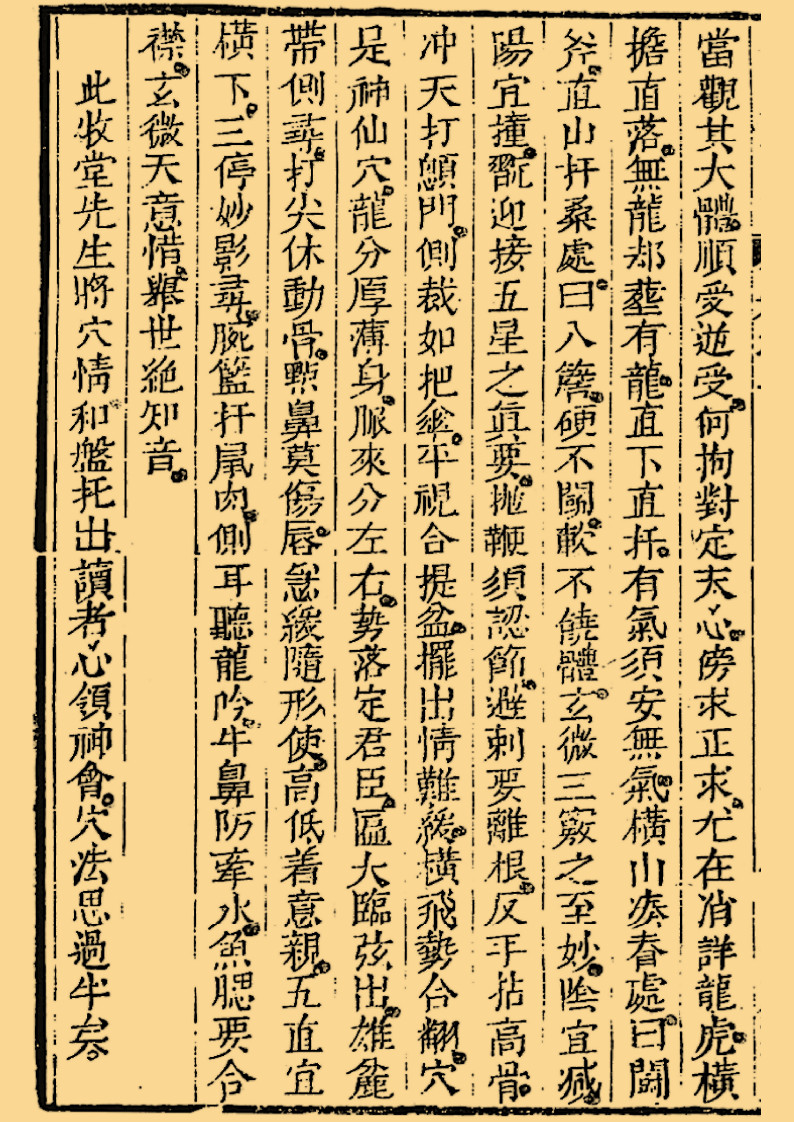 當觀其大體。順受逆受。何拘對定天心。傍求正求。尤在消詳龍虎。橫
擔直落。無龍却葬有龍。直下直扦。有氣須安無氣。橫山湊脊處。曰闘
斧。直山扦桑處。曰八簷。硬不闘。軟不饒體。玄微三竅之至妙。陰宜減。
陽宜撞。翫迎接五星之氣。要拋鞭須認節。避剌要離根。反手拈高骨。
冲天打顖門。側裁如把傘。平視合提盆。擺出情難緩。橫飛勢合翻。穴
是神仙穴。龍分厚薄身。脈來分左右。勢落定君臣。區大臨弦出。雄麄
帶側尋。打尖休動骨。點鼻莫傷唇。急緩隨形使。高低着意親。五直宜
橫下。三停妙影尋。腕籃扦鼠肉。側耳聽龍吟。牛鼻防牽水。魚腮要合
襟。玄微天意惜。舉世絶知音。
此牧堂先生將穴情和盤托出讀者心領神會。穴法思過半矣。